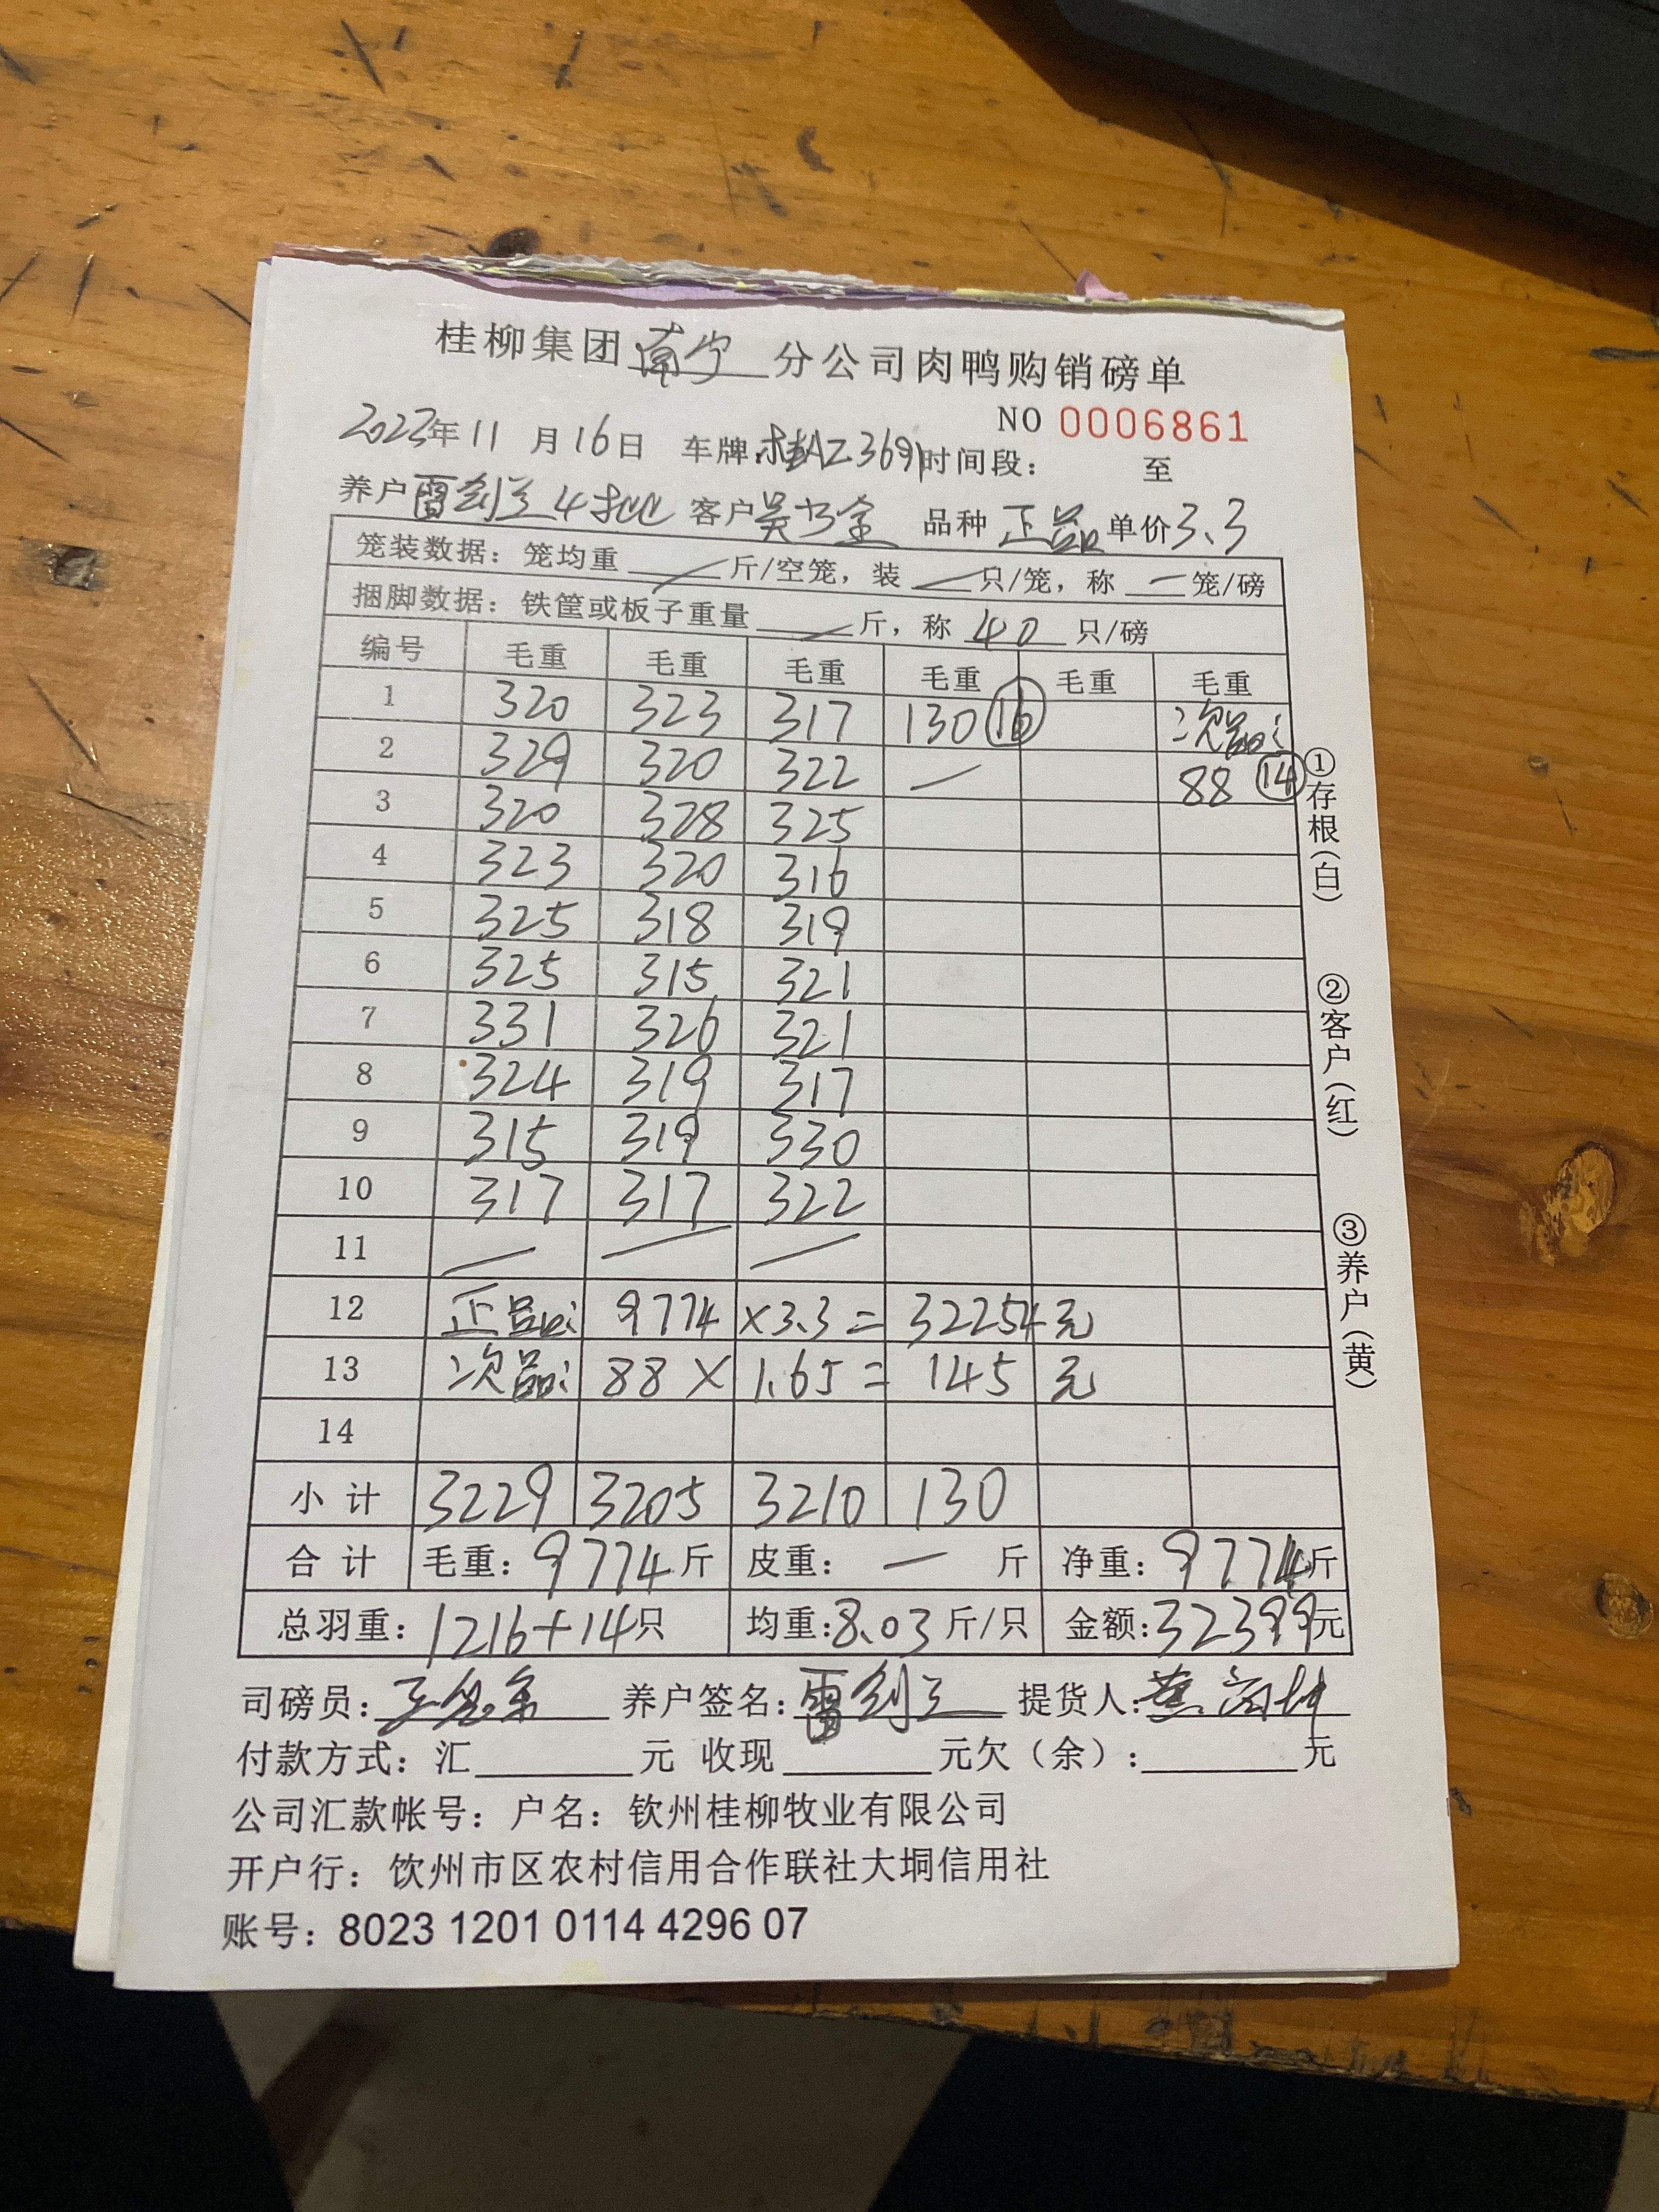 桂柳集团南宁分公司肉鸭购销磅单
NO 0006861
2023年11月16日 车牌:桂AZ3691时间段: 至
养户雷剑兰4批 客户吴 品种 正品 单价3.3
笼装数据:笼均重 / 斤/空笼,装 / 只/笼,称 一 笼/磅
捆脚数据:铁筐或板子重量 / 斤,称 40 只/磅
编号 毛重 毛重 毛重 毛重 毛重 毛重
1 320 323 317 130 ⑯ 次品:
2 329 320 322 — 88 ⑭
3 320 328 325
4 323 320 316
5 325 318 319
6 325 315 321
7 331 326 321
8 324 319 317
9 315 319 330
10 317 317 322
11 — — —
12 正品: 9774 ×3.3 = 32254元
13 次品: 88 × 1.65 = 145 元
14
小计 3229 3205 3210 130
合计 毛重:9774斤 皮重: 一 斤 净重:9774斤
总羽重:1216+14只 均重:8.03斤/只 金额:32399元
司磅员: 养户签名:雷剑兰 提货人:
付款方式:汇 元 收现 元欠(余): 元
公司汇款帐号:户名:钦州桂柳牧业有限公司
开户行:饮州市区农村信用合作联社大垌信用社
账号:8023 1201 0114 4296 07
①存根(白)
②客户(红)
③养户(黄)